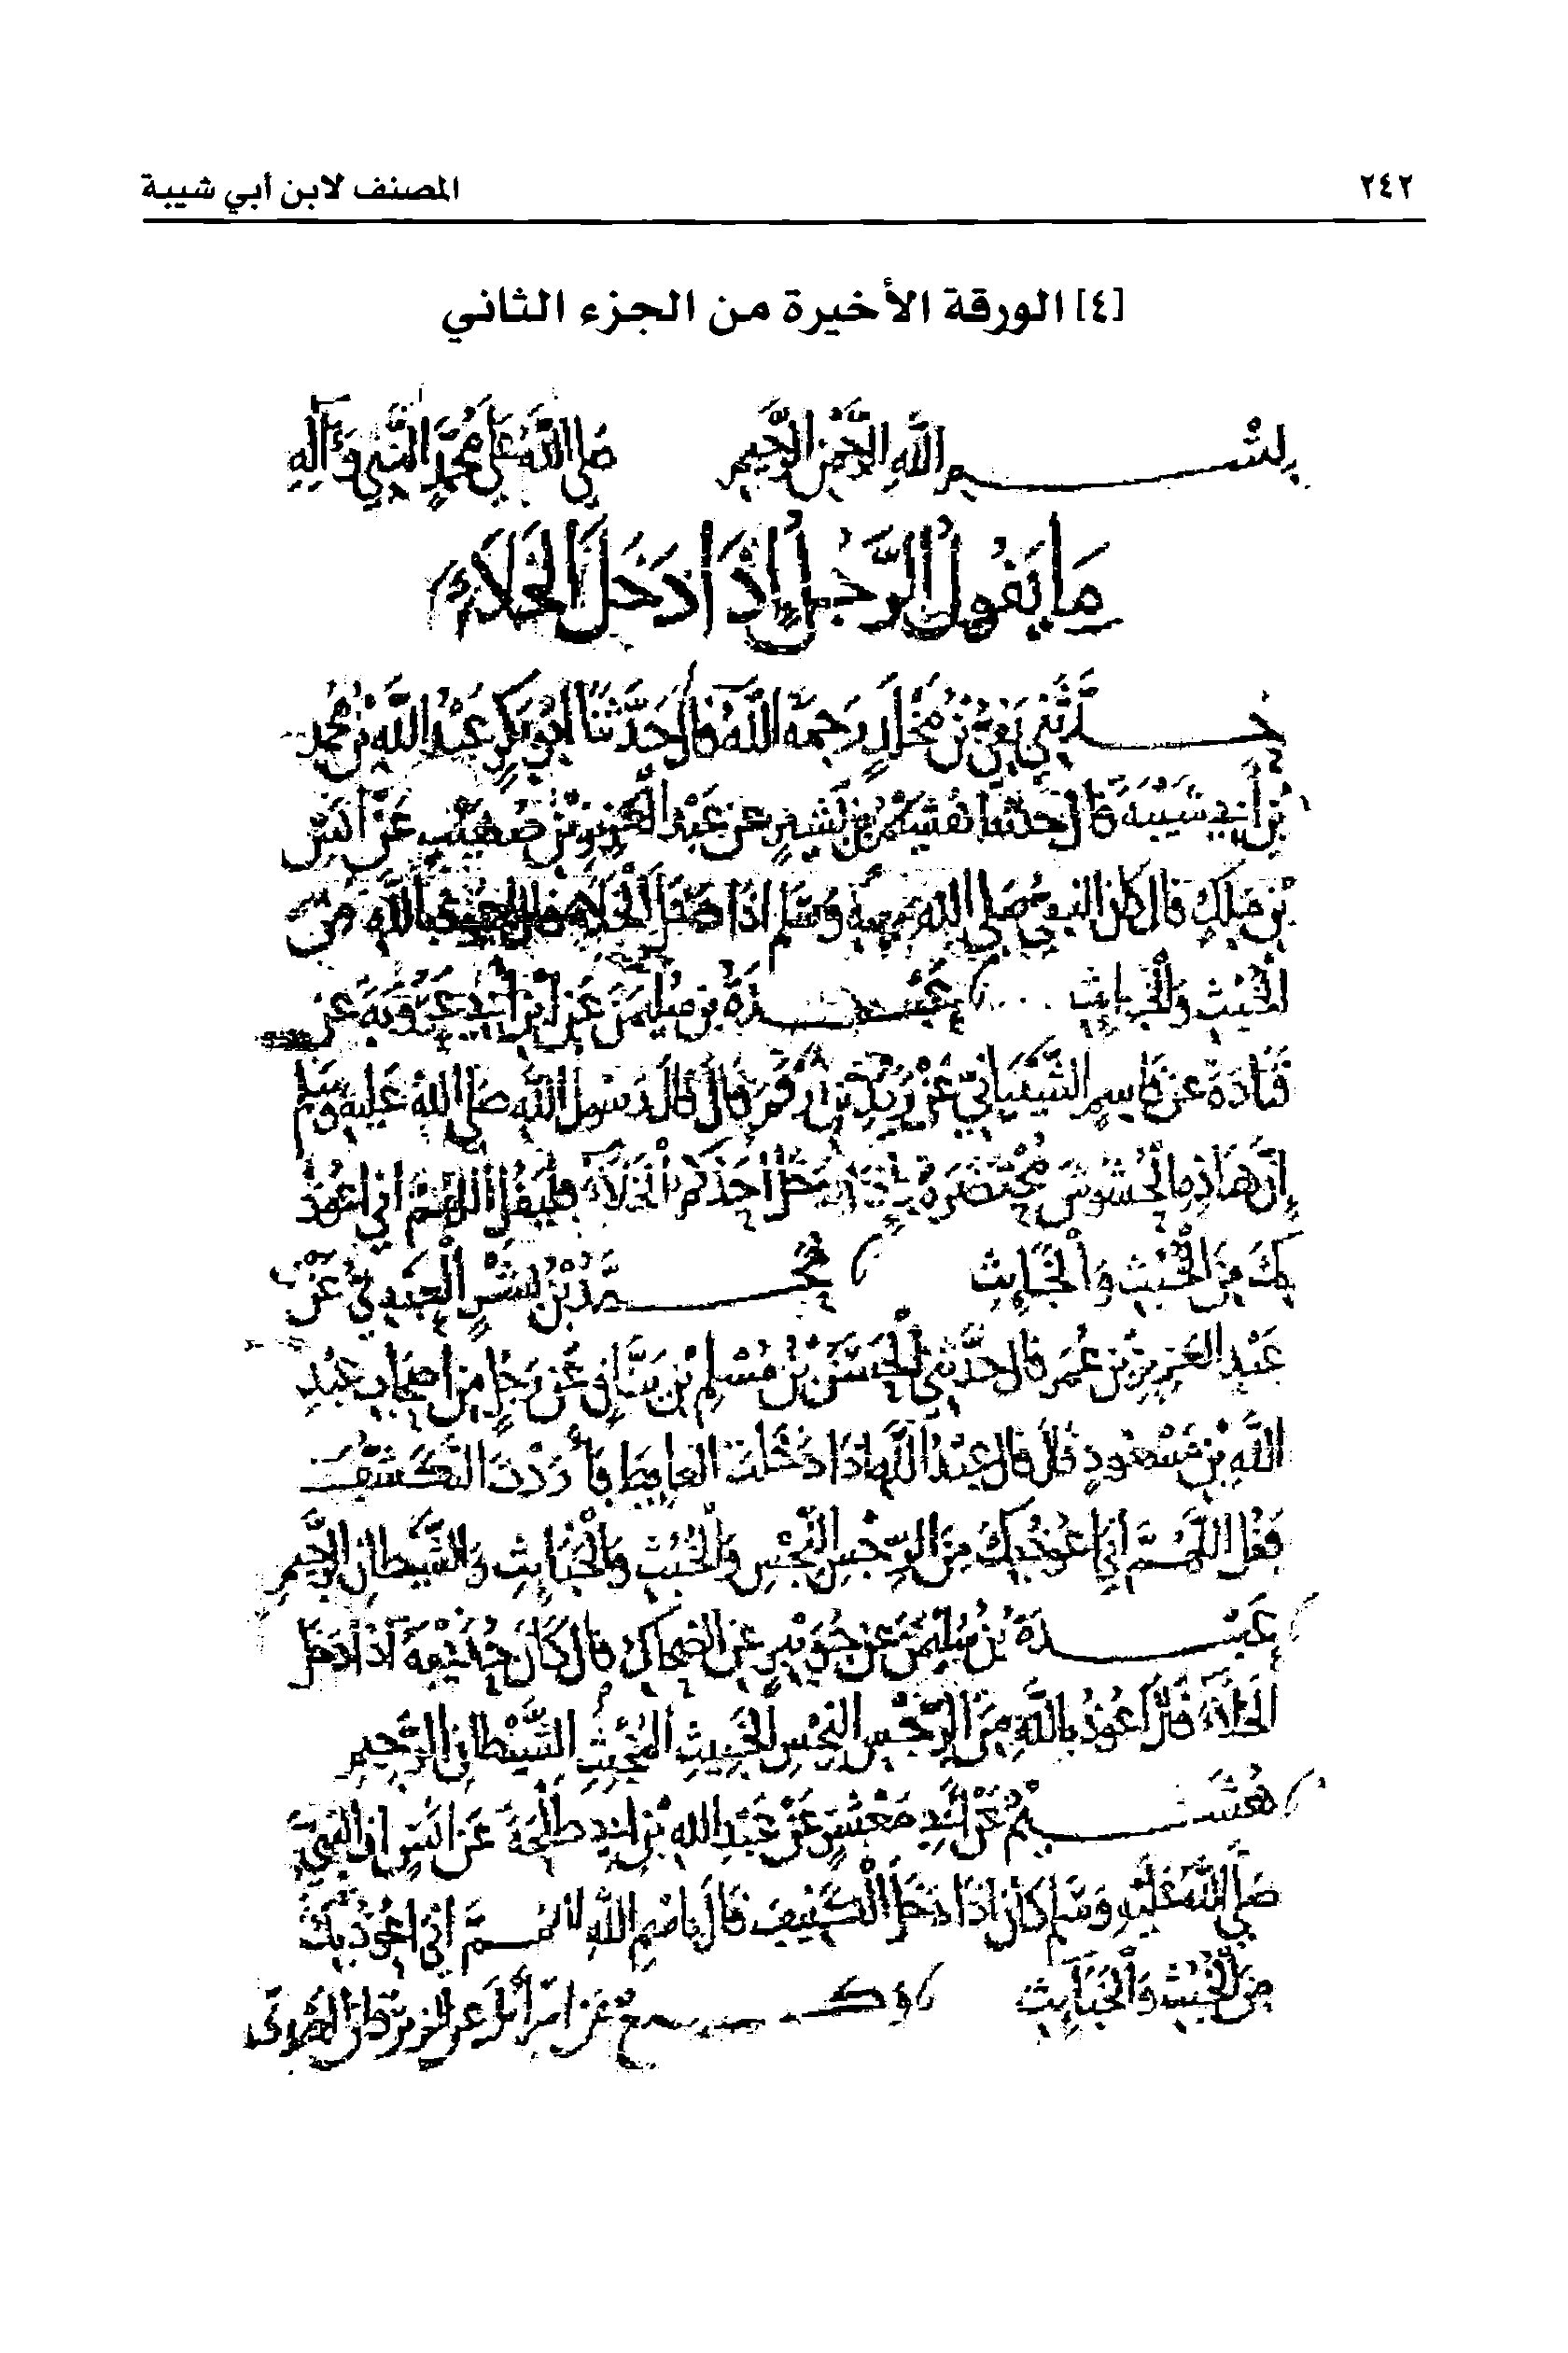 ٢٤٢ المصنف لابن أبي شيبة
[٤] الورقة الأخيرة من الجزء الثاني
بسم الله الرحمن الرحيم صلى الله على محمد النبي وآله
ما يقول الرجل إذا دخل الخلاء
حدثني بقي بن مخلد رحمه الله قال حدثنا أبو بكر عبد الله بن محمد
بن أبي شيبة قال حدثنا هشيم بن بشير عن عبد العزيز بن صهيب عن أنس
بن ملك قال كان النبي صلى الله عليه وسلم إذا دخل الخلاء قال أعوذ بالله من
الخبث والخبايث عبدة بن سليمن عن ابن أبي عروبة عن
قتادة عن قاسم الشيباني عن زيد بن أرقم قال قال رسول الله صلى الله عليه وسلم
إن هاذه الحشوش محتضرة فإذا دخل أحدكم الخلاء فليقل اللهم إني أعوذ
بك من الخبث والخبايث محمد بن بشر العبدي عن
عبد العزيز بن عمر قال حدثني الحسن بن مسلم بن يناق عن رجل من أصحاب عبد
الله بن مسعود قال قال عبد الله إذا دخلت الغايط فأردت التكشف
فقل اللهم إني أعوذ بك من الرجس النجس والخبث والخبايث والشيطان الرجيم
عبدة بن سليمن عن جويبر عن الضحاك قال كان حذيفة إذا دخل
الخلاء قال أعوذ بالله من الرجس النجس الخبيث المخبث الشيطان الرجيم
هشيم عن أبي معشر عن عبد الله بن أبي طلحة عن أنس أن النبي
صلى الله عليه وسلم كان إذا دخل الكنيف قال باسم الله اللهم إني أعوذ بك
من الخبث والخبايث وكيع عن إسرائل عن الزبرقان العبدي